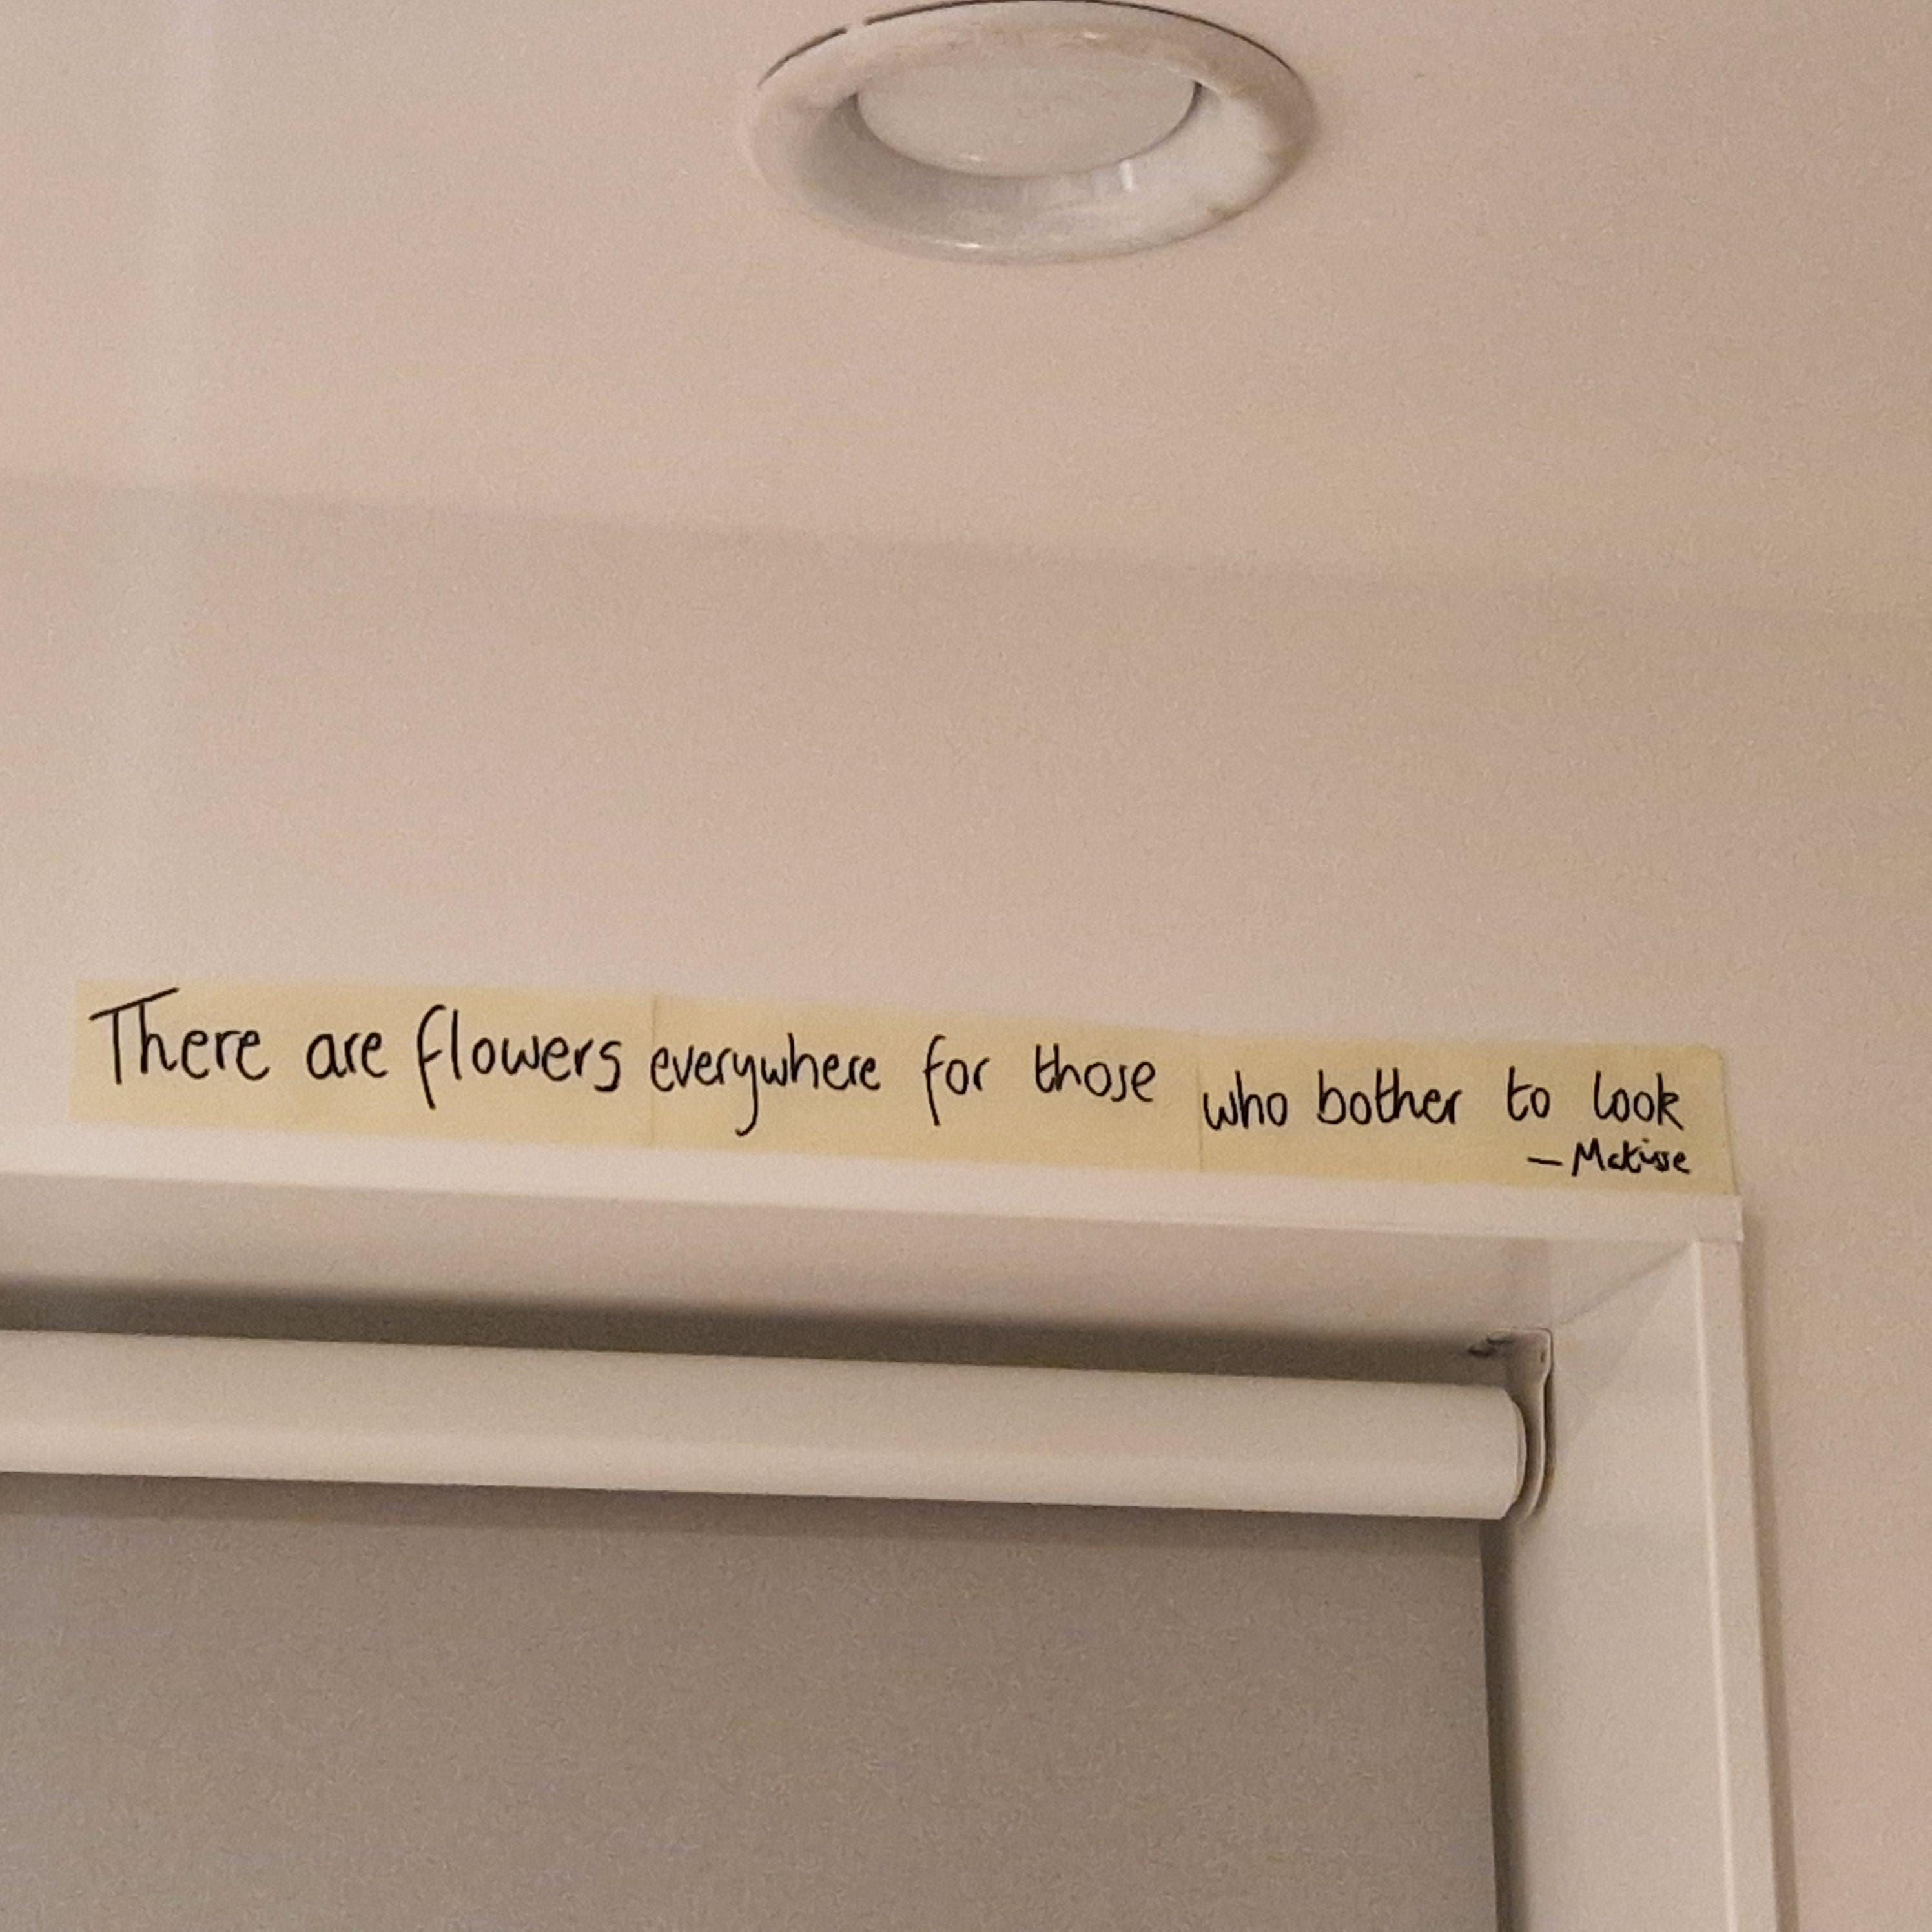 There are flowers everywhere for those who bother to look
— Matisse